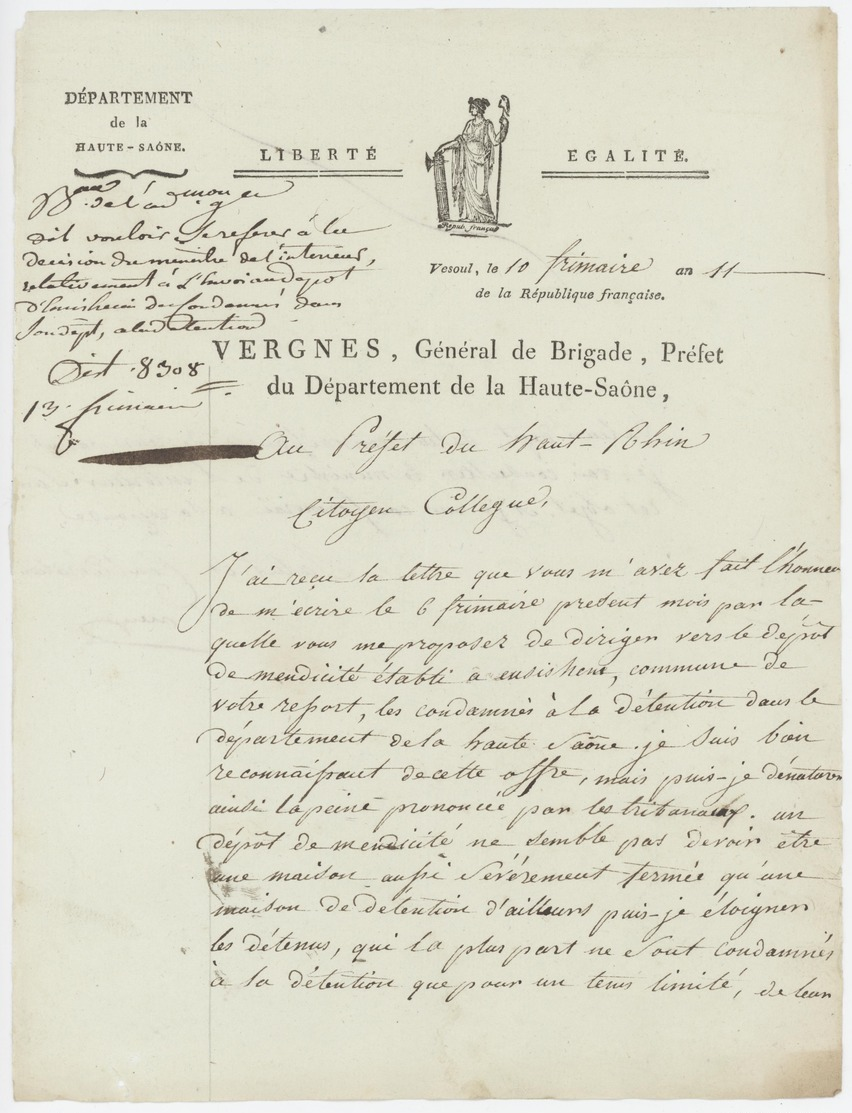 DÉPARTEMENT
de la
HAUTE-SAÔNE.
LIBERTÉ
EGALITÉ.
Répub. français
dit vouloir se referer à la
decision du ministre de l'interieur,
relativement à l'Envoi au Depot
d'Ensisheim des Condamnés dans
son dépt, a la detention
Dist. 8308
13. frimaire
Vesoul, le 10 frimaire an 11
de la République française.
VERGNES, Général de Brigade, Préfet
du Département de la Haute-Saône,
Au Préfet du haut-Rhin
Citoyen Collegue,
J'ai reçu la lettre que vous m'avez fait l'honneur
de m'écrire le 6 frimaire présent mois par la-
quelle vous me proposez de diriger vers le dépôt
de mendicité établi a ensishem, commune de
votre ressort, les condamnés à la détention dans le
département de la haute Saône. je suis bien
reconnaissant de cette offre, mais puis-je dénaturer
ainsi la peine prononcée par les tribunaux. un
dépôt de mendicité ne semble pas devoir être
une maison aussi sévérement fermée qu'une
maison de détention d'ailleurs puis-je éloigner
les détenus, qui la plus part ne sont condamnés
à la détention que pour un tems limité, de leur